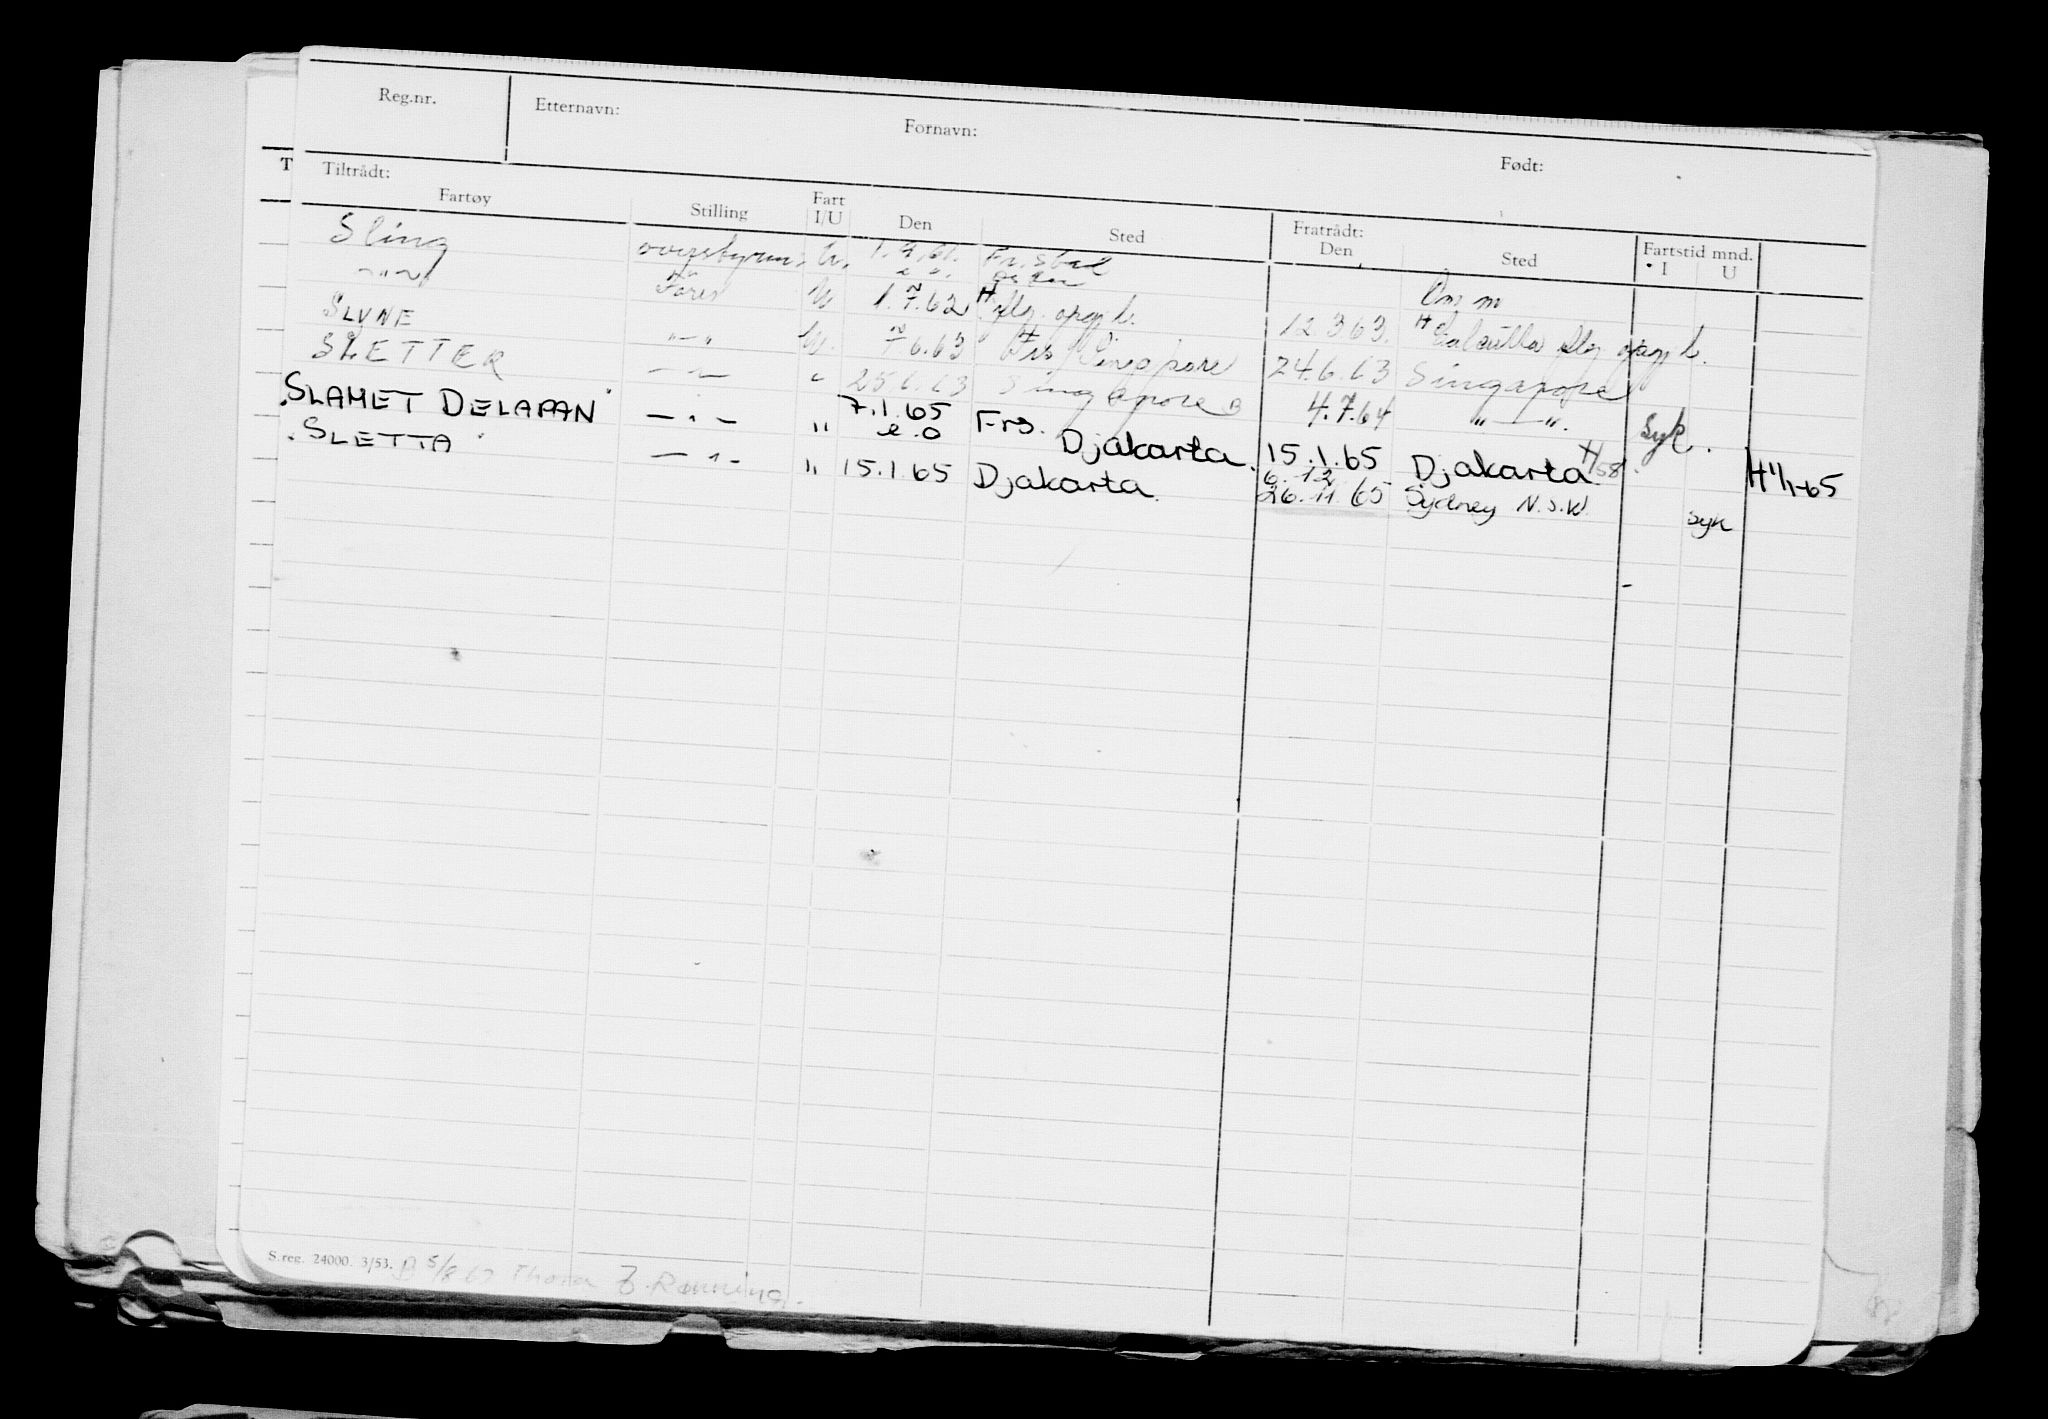 Reg.nr. Etternavn: Fornavn: Født:
T Tiltrådt: Fratrådt:
Fartøy Stilling Fart I/U Den Sted Den Sted Fartstid mnd. I U
Sling U. 1. 61. Fr.stad
— " — Fører U 1.7.62 H Om m
SLYNE — " — U. 7.6.63 Fra Singapore 12 3 63. H Calcutta
SLETTER — " — " 25 6.63 Singapore B 24.6.63 Singapore
"SLAMET DELAPAN" — " — " 7.1.65 e.o Frs. Djakarta. 4.7.64 — " — . Syk.
"SLETTA" — " — " 15.1.65 Djakarta. 15.1.65 Djakarta H/58. H 1/1-65
6.12
26.11.65 Sydney N.S.W. Syk
S.reg. 24000. 3/53. B 5/8 67 Thora Rønning.